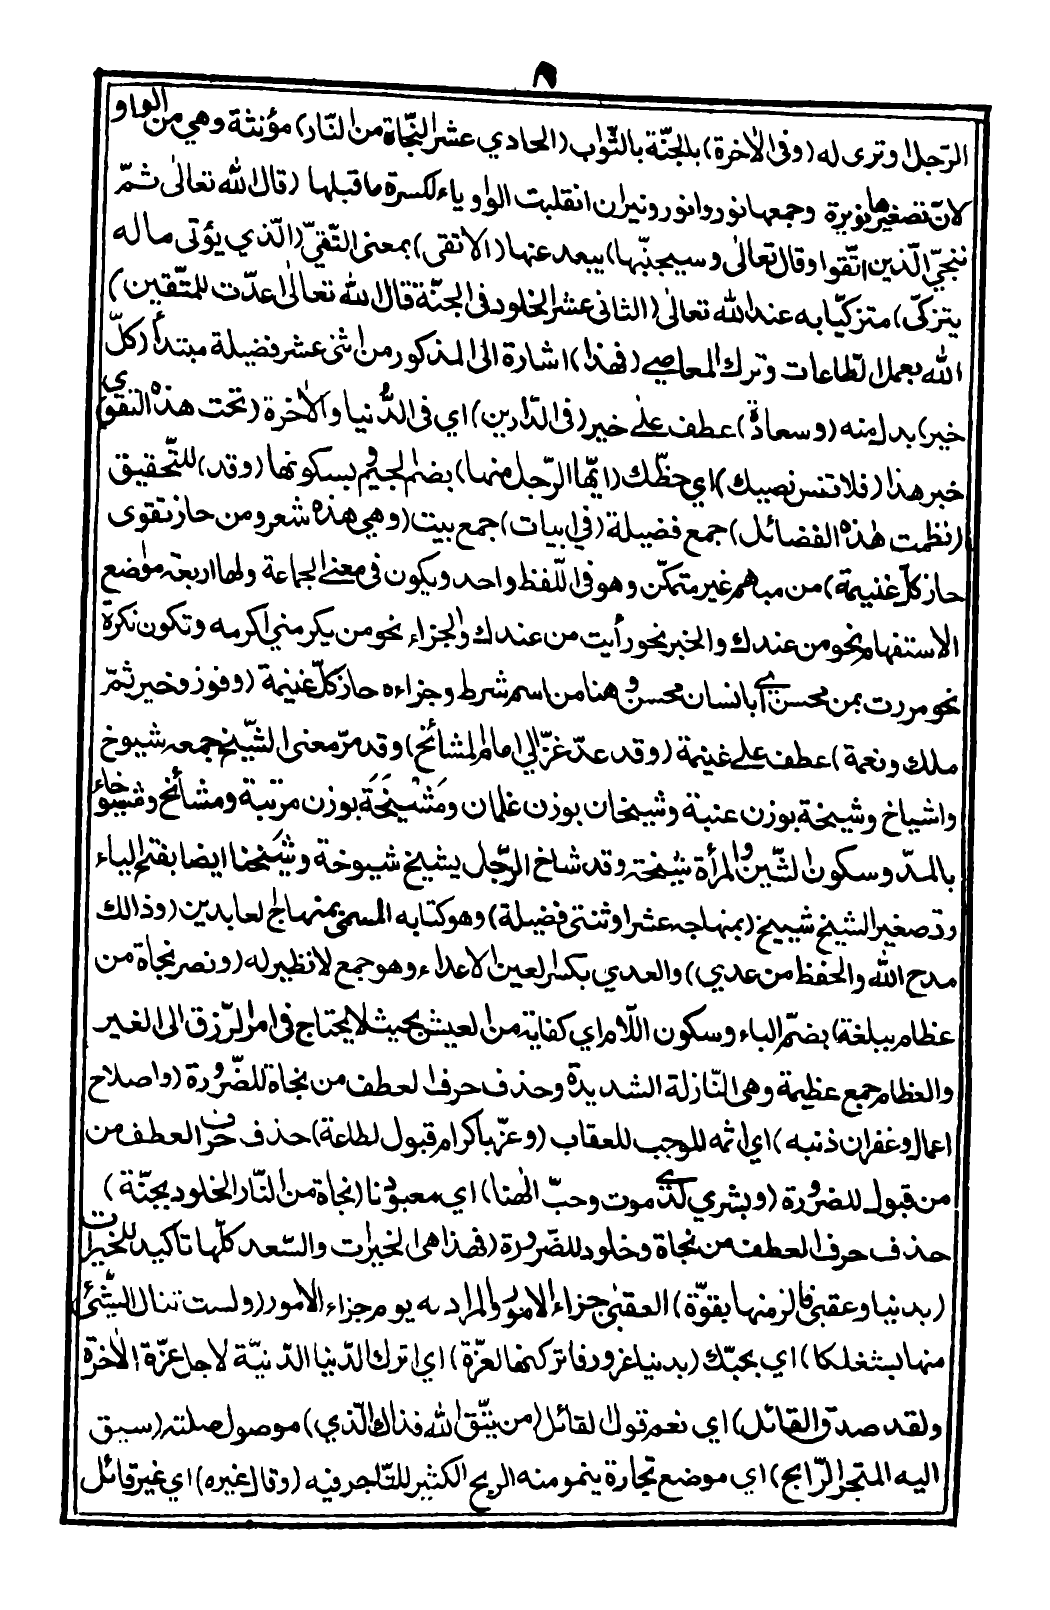 ٨
الرّجل او ترى له (وفى الاٰخرة) بالجنّة بالثّواب (الحادي عشر النّجاة من النّار) مؤنثة وهي من الواو
لانّ تصغيرها نويرة وجمعها نور وانور ونيران انقلبت الواو ياء لكسرة ما قبلها (قال الله تعالىٰ ثمّ
ننجيّ الّذين اتّقوا وقال تعالىٰ وسيجنّبها) يبعد عنها (الاتقى) بمعنى التّقيّ (الّذي يؤتى ماله
يتزكّى) متزكّيا به عند الله تعالىٰ (الثانى عشر الخلود فى الجنّة قال الله تعالىٰ اعدّت للمتّقين)
الله بعمل الطّاعات وترك المعاصي (فهذا) اشارة الى المذكور من اثنى عشر فضيلة مبتدأ (كلّ
خير) بدل منه (وسعادة) عطف على خير (فى الدّارين) اي فى الدُّنيا والاٰخرة (تحت هذه التقوي
خبر هذا (فلا تنس نصيبك) اي حظّك (ايّها الرّجل منها) بضم الجيم وبسكونها (وقد) للتّحقيق
(نظمت هٰذه الفضائل) جمع فضيلة (في ابيات) جمع بيت (وهي هذه شعر ومن حاز تقوى
حاز كلّ غنيمة) من مبهم غير متمكّن وهو فى اللّفظ واحد ويكون فى معنى الجماعة ولها اربعة مواضع
الاستفهام نحو من عندك والخبر نحو رأيت من عندك والجزاء نحو من يكرمني اكرمه وتكون نكرة
نحو مررت بمن محسن أي بانسان محسن وهنا من اسم شرط وجزاءه حاز كلّ غنيمة (وفوز وخير ثمّ
ملك ونعمة) عطف على غنيمة (وقد عدّ غزّالي امام المشائخ) وقد مرّ معنى الشّيخ جمعه شيوخ
واشياخ وشيخة بوزن عنبة وشيخان بوزن غلمان ومَشْيَخَة بوزن مرتبة ومشائخ ومشيوخاء
بالمدّ وسكون الشّين والمرأة شيخة وقد شاخ الرّجل يشيخ شيوخة وشَيَخنا ايضا بفتح الياء
وتصغير الشيخ شييخ (بمنهاجه عشرا وثنتى فضيلة) وهو كتابه المسمى بمنهاج العابدين (وذالك
مدح الله والحفظ من عدي) والعدي بكسر العين الاعداء وهو جمع لا نظير له (ونصر نجاة من
عظام ببلغة) بضمّ الباء وسكون اللّام اي كفاية من العيش بحيث لا يحتاج فى امر الرّزق الى الغير
والعظام جمع عظيمة وهى النّازلة الشديدة وحذف حرف العطف من نجاة للضّرورة (واصلاح
اعمال وغفران ذنبه) اي اثمه الموجب للعقاب (وعزّ باكرام قبول لطاعة) حذف حرف العطف من
من قبول للضرورة (وبشري لدي موت وحبّ الٰهنا) اي معبودنا (نجاة من النّار الخلود بجنّة)
حذف حرف العطف من نجاة وخلود للضّرورة (فهذا هى الخيرات والسّعد كلّها تأكيد للخيرات
(بدنيا وعقبى فالزمنها بقوّة) العقبى جزاء الامور والمراد به يوم جزاء الامور (ولست تنال الشّئ
منها بشغلكا) اي بحبّك (بدنيا غرور فاتركنها لعزّة) اي اترك الدّنيا الدّنيّة لاجل عزّة الاٰخرة
ولقد صدق القائل) اي نعم قول القائل (من يتّق الله فذاك الّذي) موصول صلته (سيق
اليه المتجر الرّابح) اي موضع تجارة ينمو منه الربح الكثير للتّاجر فيه (وقال غيره) اي غير قائل